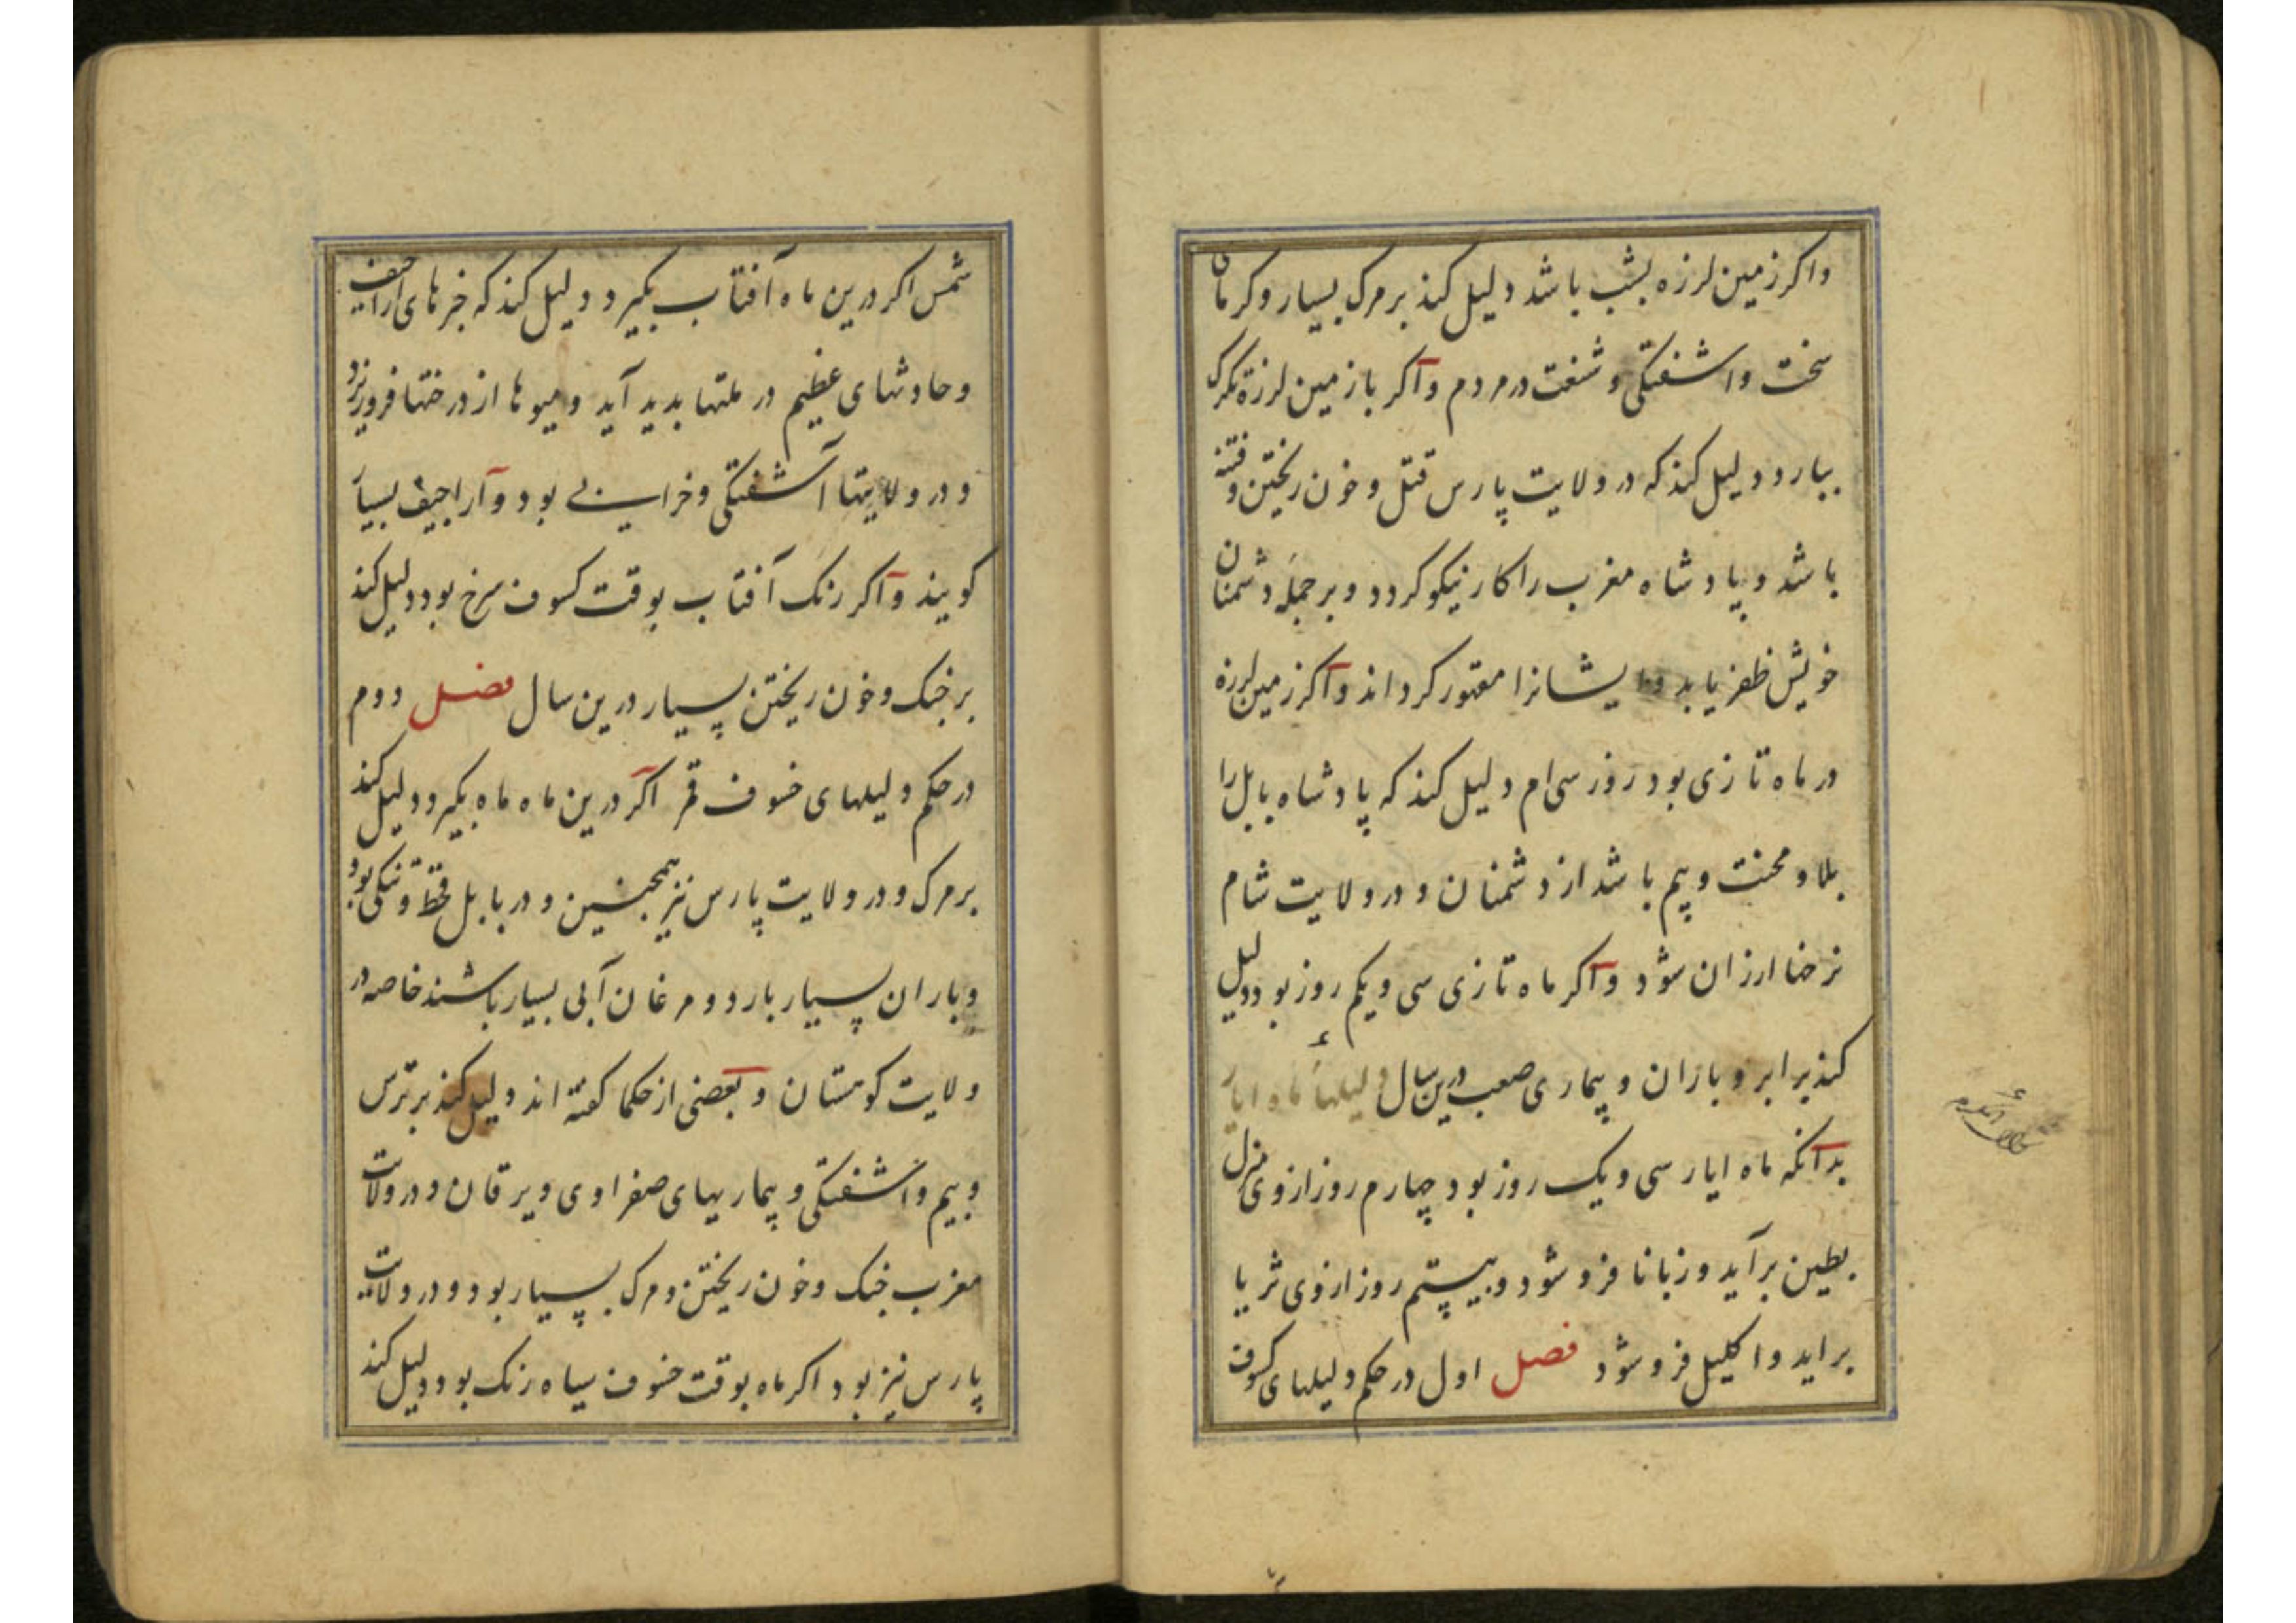 واکر زمین لرزه بشب باشد دلیل کند بر مرک بسیار و کرمان
سخت واشفتکی و شنعت در مردم واکر با زمین لرزه تکرک
ببارد دلیل کند که در ولایت پارس قتل و خون ریختن و فتنه
باشد و پادشاه مغرب را کار نیکو کردد و بر جمله دشمنان
خویش ظفر یابد و ایشانرا مقهور کرداند واکر زمین لرزه
در ماه تازی بود روز سی ام دلیل کند که پادشاه بابل را
بلا و محنت و بیم باشد از دشمنان و در ولایت شام
نرخها ارزان شود واکر ماه تازی سی و یکم روز بود دلیل
کند بر ابر و باران و بیماری صعب درین سال دلیلهاء ماه ایار
بدانکه ماه ایار سی و یک روز بود چهارم روز ازوی منزل
بطین برآید و زبانا فرو شود و بیستم روز ازوی ثریا
براید واکلیل فرو شود فصل اول در حکم دلیلهای کسوف
شمس اکر درین ماه آفتاب بکیرد دلیل کند که خبرهای اراجیف
و حادثهای عظیم در ملتها بدید آید و میوها از درختها فرو ریزد
و در ولایتها آشفتکی و خرابی بود و اراجیف بسیار
کویند واکر رنک آفتاب بوقت کسوف سرخ بود دلیل کند
بر جنک و خون ریختن بسیار درین سال فصل دوم
در حکم دلیلهای خسوف قمر اکر درین ماه ماه بکیرد دلیل کند
بر مرک و در ولایت پارس نیز همچنین و در بابل قحط و تنکی بود
و باران بسیار بارد و مرغان آبی بسیار باشند خاصه در
ولایت کوهستان و بعضی از حکما کفته اند دلیل کند بر ترس
و بیم و آشفتکی و بیماریهای صفراوی و یرقان و در ولایت
مغرب جنک و خون ریختن و مرک بسیار بود و در ولایت
پارس نیز بود اکر ماه بوقت خسوف سیاه رنک بود دلیل کند